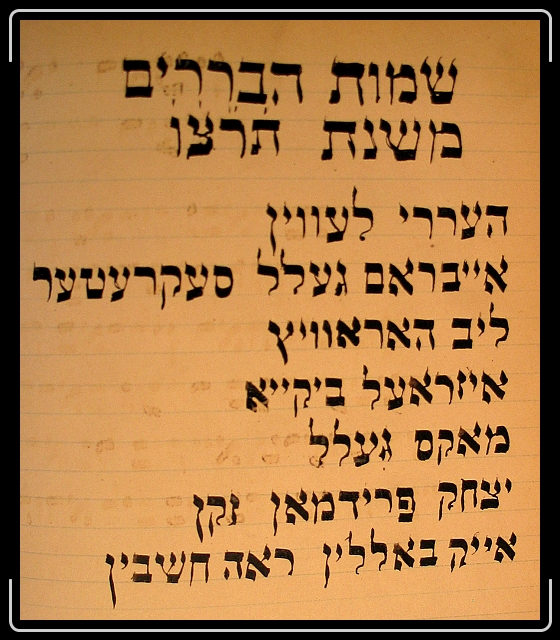 שמות הבררים
משנת תרצו
העררי לעווין
אייבראם געלל סעקרעטער
ליב האראוויץ
איזראעל ביקייא
מאקס געלל
יצחק פרידמאן זקן
אייק באללין ראה חשבין